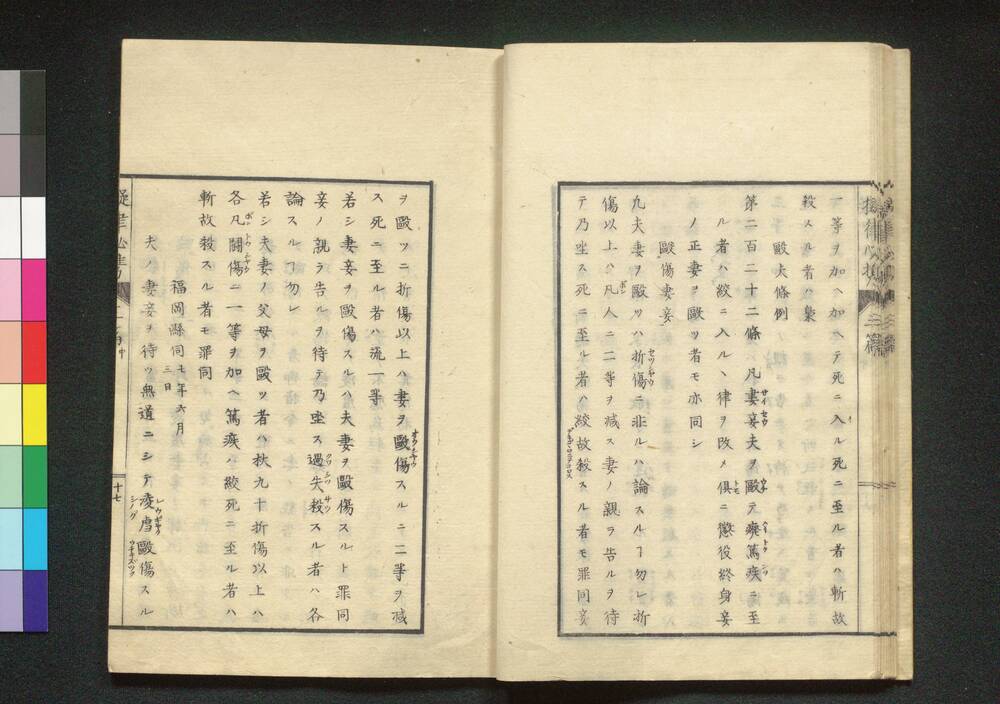 一等ヲ加ヘ加ヘテ死ニ入ル死ニ至ル者ハ斬故
殺スル者ハ梟
毆夫條例
第二百二十二條 凡妻妾夫ヲ毆テ癈篤疾ニ至
ル者ハ絞ニ入ル丶律ヲ改メ俱ニ懲役終身妾
ノ正妻ヲ毆ツ者モ亦同シ
毆傷妻妾
凡夫妻ヲ毆ツハ折傷ニ非ルハ論スルヿ勿レ折
傷以上ハ凡人ニ二等ヲ減ス妻ノ親ラ告ルヲ待
テ乃坐ス死ニ至ル者ハ絞故殺スル者モ罪同妾
ヲ毆ツニ折傷以上ハ妻ヲ毆傷スルニ二等ヲ減
ス死ニ至ル者ハ流一等
若シ妻妾ヲ毆傷スルハ夫妻ヲ毆傷スルト罪同
妾ノ親ラ告ルヲ待テ乃坐ス過失殺スル者ハ各
論スルヿ勿レ
若シ夫妻ノ父母ヲ毆ツ者ハ杖九十折傷以上ハ
各凡鬪傷ニ一等ヲ加ヘ篤疾ハ絞死ニ至ル者ハ
斬故殺スル者モ罪同
福岡縣伺 七年六月三日
夫ノ妻妾ヲ待ツ無道ニシテ凌虐毆傷スル
十七